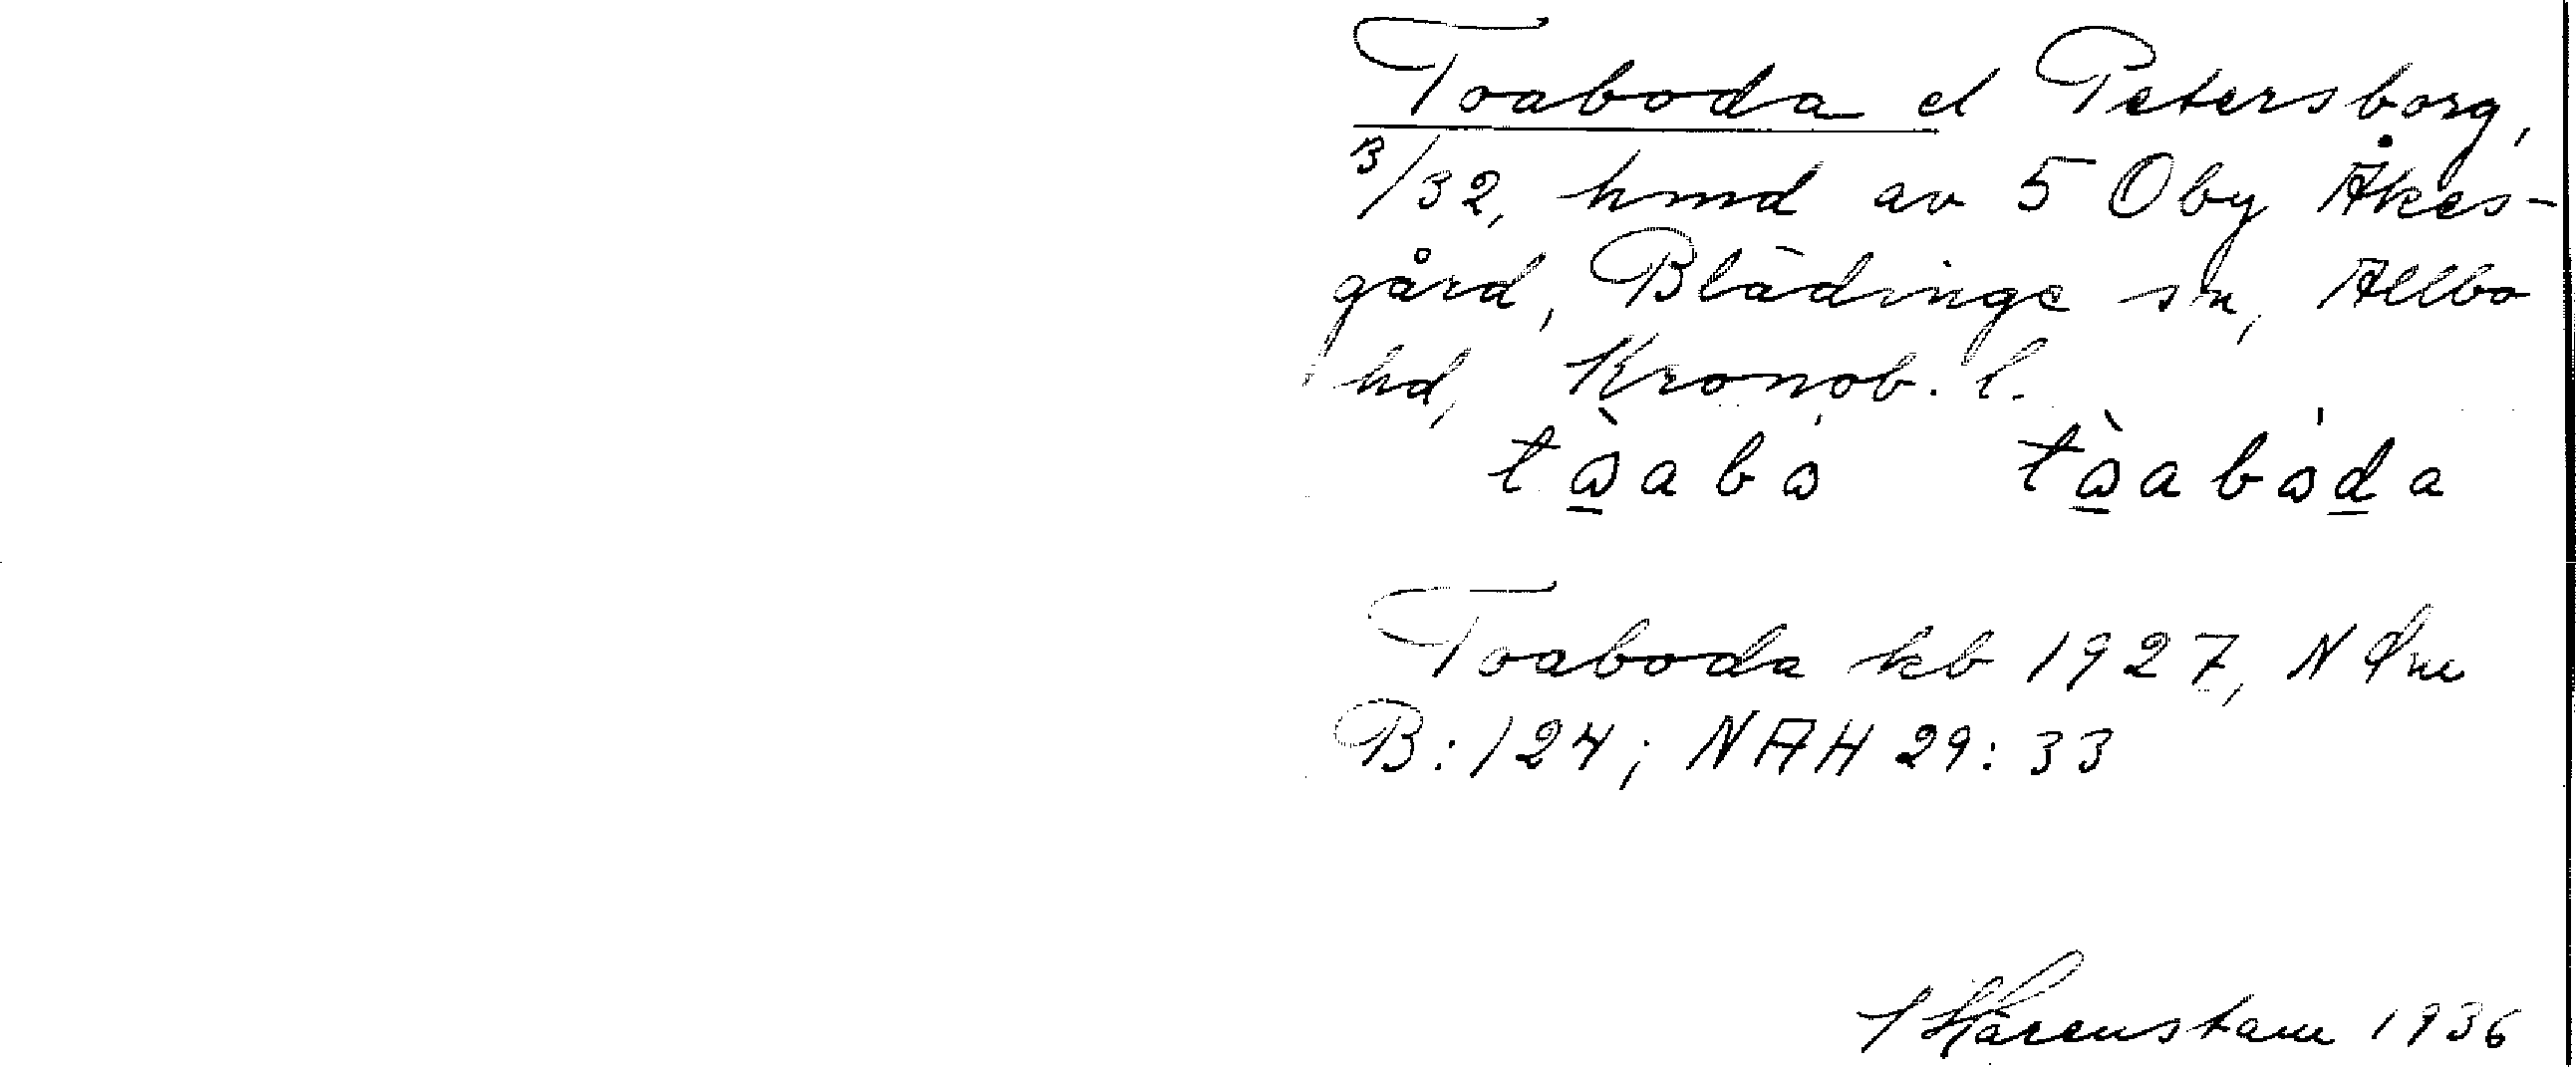 Toaboda el Petersborg,
3/32, hmd av 5 Oby Åkes-
gård, Blädinge sn, Allbo
hd, Kronob. l.
tὼ̲abω̍ tὼ̲abω̍d̲a
Toaboda kb 1927, N
B:124; NAH 29:33
Härenstam 1936